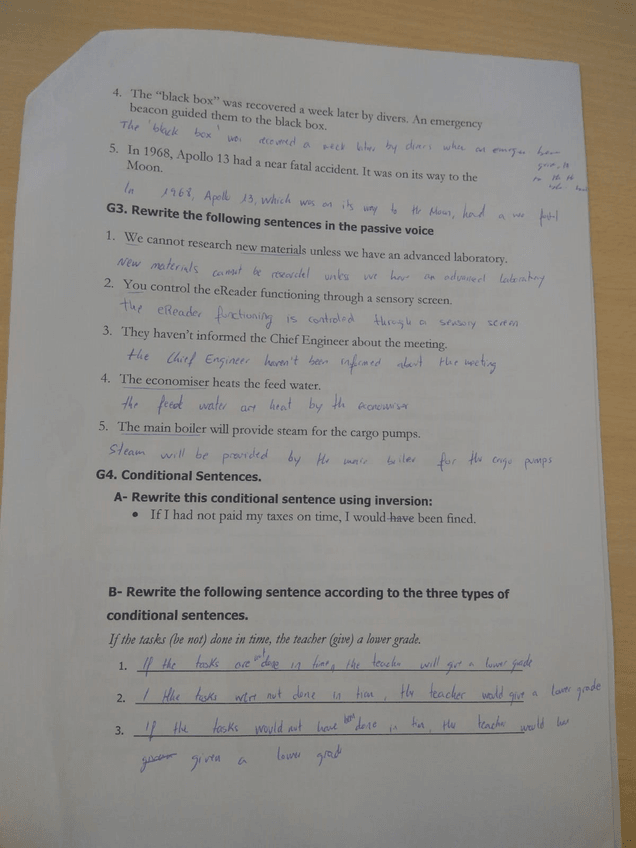 4. The “black box” was recovered a week later by divers. An emergency
beacon guided them to the black box.
The 'black box' was recovered a week later by divers when an
5. In 1968, Apollo 13 had a near fatal accident. It was on its way to the
Moon.
In 1968, Apollo 13, which was on its way to the Moon, had a
G3. Rewrite the following sentences in the passive voice
1. We cannot research new materials unless we have an advanced laboratory.
New materials cannot be researched unless we have an advanced laboratory
2. You control the eReader functioning through a sensory screen.
the eReader functioning is controled through a sensory screen
3. They haven’t informed the Chief Engineer about the meeting.
the Chief Engineer haven't been informed about the meeting
4. The economiser heats the feed water.
the feed water are heat by th economiser
5. The main boiler will provide steam for the cargo pumps.
Steam will be provided by the main boiler for the cargo pumps
G4. Conditional Sentences.
A- Rewrite this conditional sentence using inversion:
• If I had not paid my taxes on time, I would have been fined.
B- Rewrite the following sentence according to the three types of
conditional sentences.
If the tasks (be not) done in time, the teacher (give) a lower grade.
1. If the tasks are not done in time, the teacher will give a lower grade
2. the tasks were not done in time, the teacher would give a lower grade
3. If the tasks would not have been done in the teacher would
given a lower grad